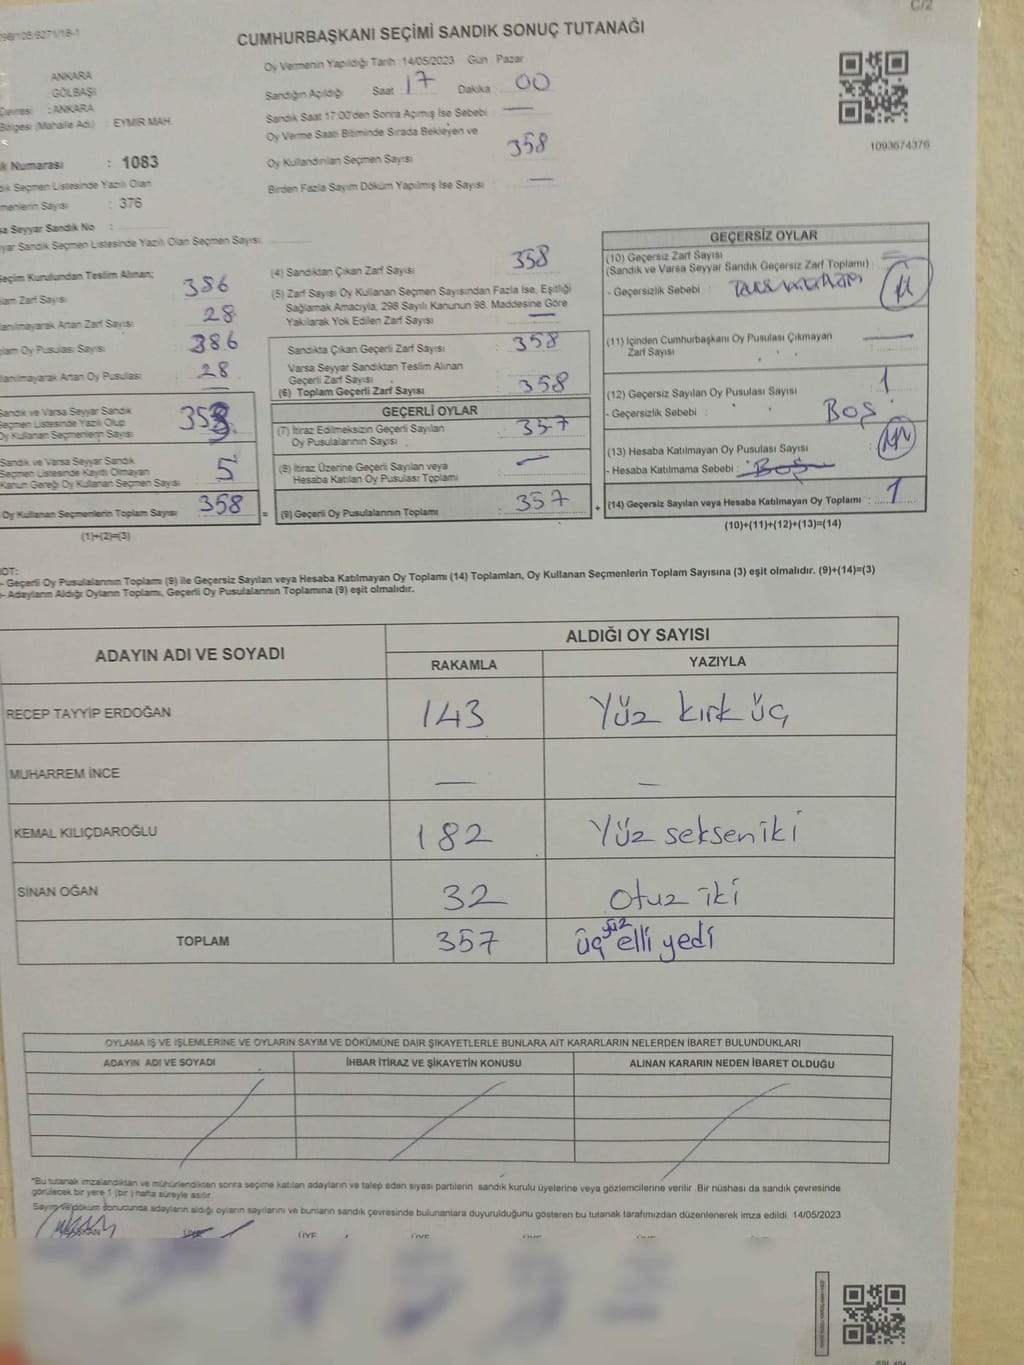 C/2
CUMHURBAŞKANI SEÇİMİ SANDIK SONUÇ TUTANAĞI
ANKARA
GÖLBAŞI
Çevresi : ANKARA
Bölgesi (Mahalle Adı) : EYMİR MAH.
Numarası : 1083
Seçmen Listesinde Yazılı Olan
Sayısı : 376
Seyyar Sandık No :
Sandık Seçmen Listesinde Yazılı Olan Seçmen Sayısı:
Oy Vermenin Yapıldığı Tarih :14/05/2023 Gün Pazar
Sandığın Açıldığı Saat 17 Dakika 00
Sandık Saat 17:00'den Sonra Açılmış İse Sebebi : —
Oy Verme Saati Bitiminde Sırada Bekleyen ve
Oy Kullandırılan Seçmen Sayısı : 358
Birden Fazla Sayım Döküm Yapılmış İse Sayısı : —
1093674376
Seçim Kurulundan Teslim Alınan;
Zarf Sayısı : 386
Artan Zarf Sayısı : 28
Oy Pusulası Sayısı : 386
Artan Oy Pusulası : 28
Sandık ve Varsa Seyyar Sandık
Seçmen Listesinde Yazılı Olup
Oy Kullanan Seçmenlerin Sayısı : 353
Sandık ve Varsa Seyyar Sandık
Seçmen Listesinde Kayıtlı Olmayan
Kanun Gereği Oy Kullanan Seçmen Sayısı : 5
Oy Kullanan Seçmenlerin Toplam Sayısı : 358
(1)+(2)=(3)
(4) Sandıktan Çıkan Zarf Sayısı : 358
(5) Zarf Sayısı Oy Kullanan Seçmen Sayısından Fazla İse, Eşitliği
Sağlamak Amacıyla, 298 Sayılı Kanunun 98. Maddesine Göre
Yakılarak Yok Edilen Zarf Sayısı : —
Sandıkta Çıkan Geçerli Zarf Sayısı : 358
Varsa Seyyar Sandıktan Teslim Alınan
Geçerli Zarf Sayısı :
(6) Toplam Geçerli Zarf Sayısı : 358
GEÇERLİ OYLAR
(7) İtiraz Edilmeksizin Geçerli Sayılan
Oy Pusulalarının Sayısı : 357
(8) İtiraz Üzerine Geçerli Sayılan veya
Hesaba Katılan Oy Pusulası Toplamı : —
= (9) Geçerli Oy Pusulalarının Toplamı : 357 +
GEÇERSİZ OYLAR
(10) Geçersiz Zarf Sayısı
(Sandık ve Varsa Seyyar Sandık Geçersiz Zarf Toplamı) : =
- Geçersizlik Sebebi :
(11) İçinden Cumhurbaşkanı Oy Pusulası Çıkmayan
Zarf Sayısı : —
(12) Geçersiz Sayılan Oy Pusulası Sayısı : 1
- Geçersizlik Sebebi : BOŞ
(13) Hesaba Katılmayan Oy Pusulası Sayısı :
- Hesaba Katılmama Sebebi : BOŞ
(14) Geçersiz Sayılan veya Hesaba Katılmayan Oy Toplamı : 1
(10)+(11)+(12)+(13)=(14)
- Geçerli Oy Pusulalarının Toplamı (9) ile Geçersiz Sayılan veya Hesaba Katılmayan Oy Toplamı (14) Toplamları, Oy Kullanan Seçmenlerin Toplam Sayısına (3) eşit olmalıdır. (9)+(14)=(3)
- Adayların Aldığı Oyların Toplamı, Geçerli Oy Pusulalarının Toplamına (9) eşit olmalıdır.
ADAYIN ADI VE SOYADI
ALDIĞI OY SAYISI
RAKAMLA YAZIYLA
RECEP TAYYİP ERDOĞAN 143 Yüz kırk üç
MUHARREM İNCE — —
KEMAL KILIÇDAROĞLU 182 Yüz seksen iki
SİNAN OĞAN 32 otuz iki
TOPLAM 357 üç yüz elli yedi
OYLAMA İŞ VE İŞLEMLERİNE VE OYLARIN SAYIM VE DÖKÜMÜNE DAİR ŞİKAYETLERLE BUNLARA AİT KARARLARIN NELERDEN İBARET BULUNDUKLARI
ADAYIN ADI VE SOYADI İHBAR İTİRAZ VE ŞİKAYETİN KONUSU ALINAN KARARIN NEDEN İBARET OLDUĞU
"Bu tutanak imzalandıktan ve mühürlendikten sonra seçime katılan adayların ve talep eden siyasi partilerin sandık kurulu üyelerine veya gözlemcilerine verilir. Bir nüshası da sandık çevresinde
görülecek bir yere 1 (bir) hafta süreyle asılır.
Sayım ve döküm sonucunda adayların aldığı oyların sayılarını ve bunların sandık çevresinde bulunanlara duyurulduğunu gösteren bu tutanak tarafımızdan düzenlenerek imza edildi. 14/05/2023